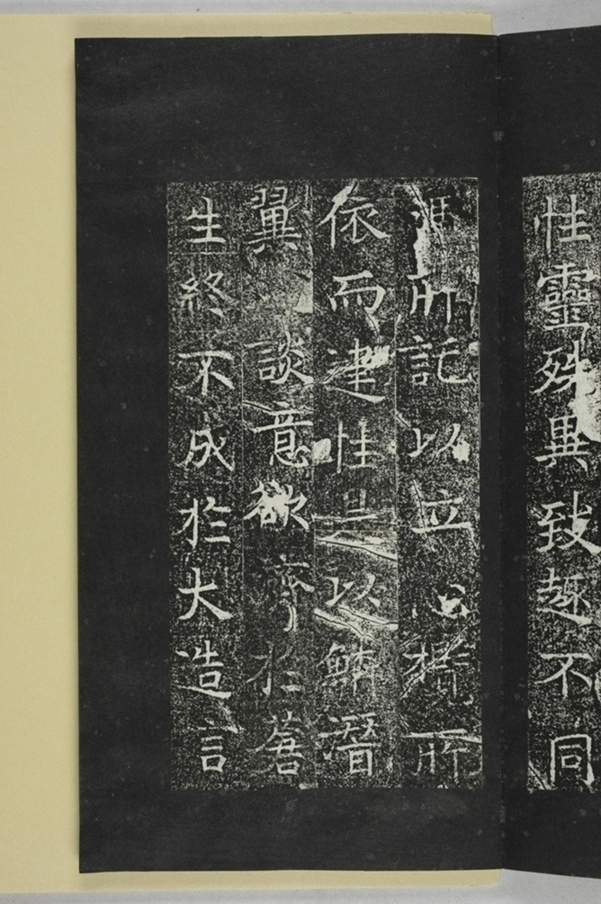 性靈殊異致趣不同
所託以立心機所
依而建性是以鱗潛
翼談意欲齊於蒼
生終不成於大造言